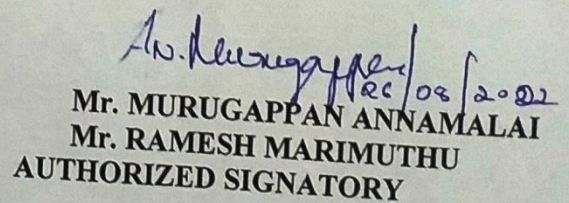 AN. Murugappan
26/08/2022
Mr. MURUGAPPAN ANNAMALAI
Mr. RAMESH MARIMUTHU
AUTHORIZED SIGNATORY